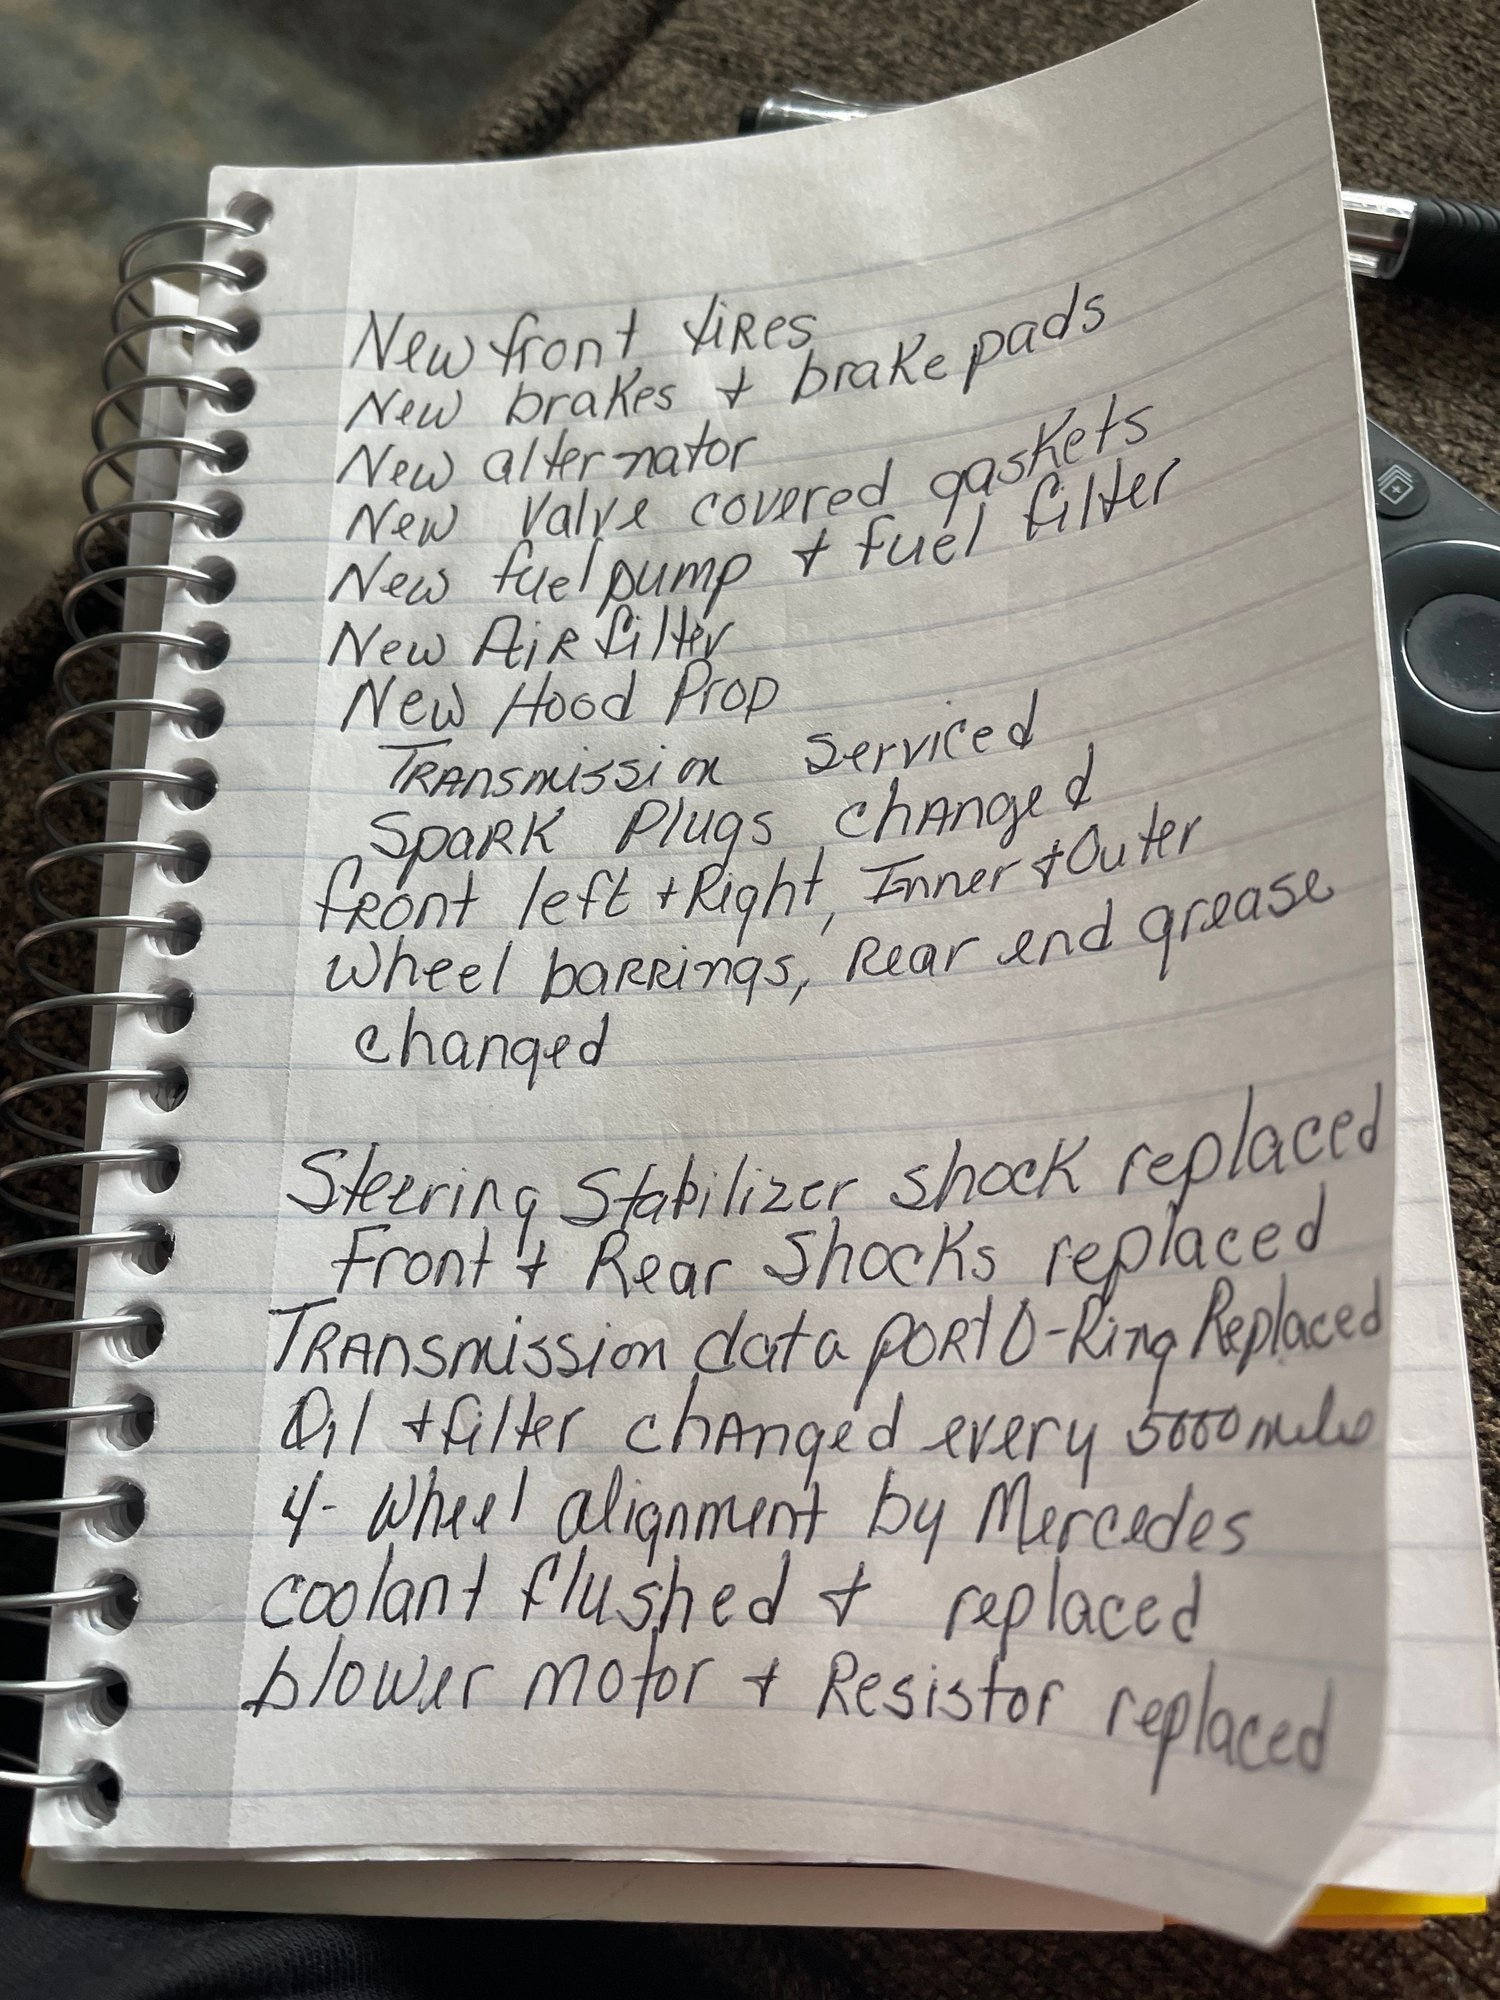 New front tires
New brakes & brake pads
New alternator
New Valve covered gaskets
New fuel pump & fuel filter
New Air filter
New Hood Prop
Transmission Serviced
Spark Plugs changed
front left + Right, Inner & Outer
wheel barrings, Rear end grease
changed
Steering Stabilizer shock replaced
Front & Rear Shocks replaced
Transmission data port O-Ring Replaced
Oil + filter changed every 5000 miles
4- Wheel alignment by Mercedes
coolant flushed & replaced
blower motor & Resistor replaced